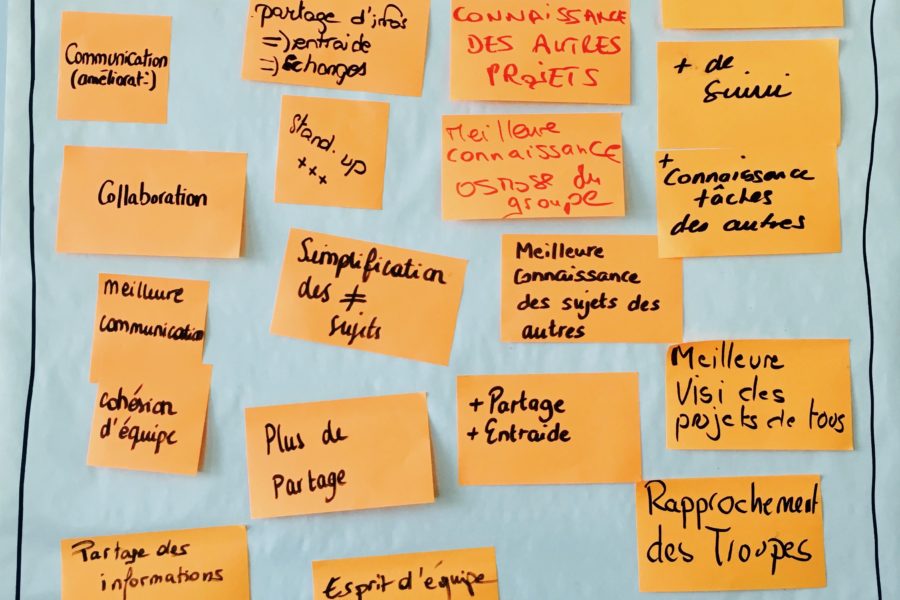 Communication
(améliorat°)
partage d'infos
=) entraide
=) échanges
CONNAISSANCE
DES AUTRES
PROJETS
+ de
Suivi
Stand. up
+++
Meilleure
connaissance
osmose du
groupe
+
Connaissance
tâches
des autres
Collaboration
Simplification
des ≠
sujets
Meilleure
Connaissance
des sujets des
autres
meilleure
communication
Cohésion
d'équipe
Plus de
Partage
+ Partage
+ Entraide
Meilleure
Visi des
projets de tous
Rapprochement
des Troupes
Partage des
informations
Esprit d'équipe